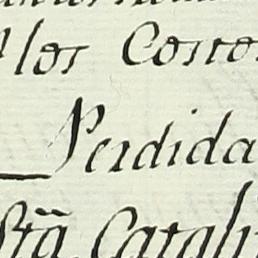 los Costo
Perdida
Sta Catali